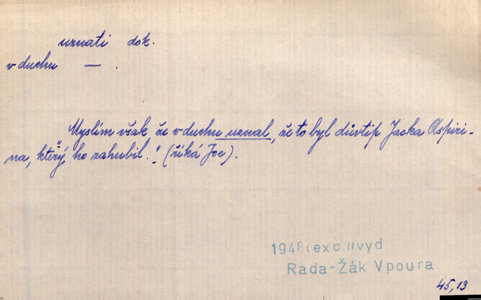 uznati dok.
v duchu — .
Myslím však, že v duchu uznal, že to byl důvtip Jacka Aspiri-
na, který ho zahubil." (říká Joe).
1948(exc.)Ivyd
Rada-Žák Vpoura
45,13